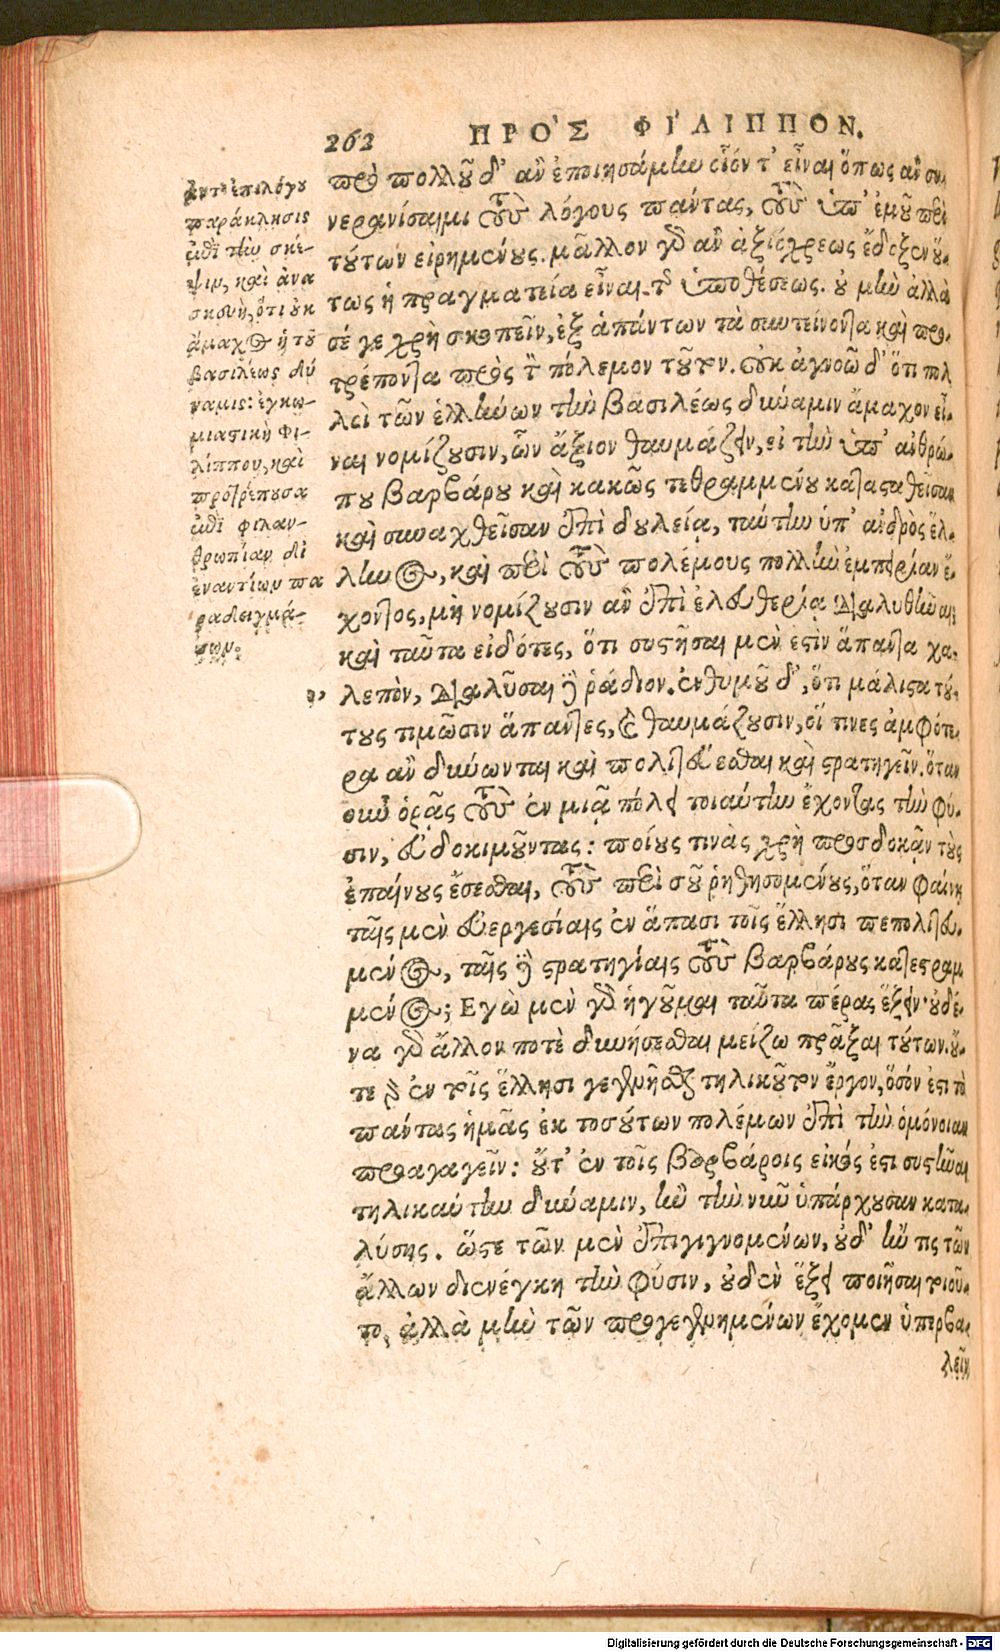 262 ΠΡΟ'Σ ΦΙ'ΛΙΠΠΟΝ.
πρὸ πολλοῦ δ' ἂν ἐποιησάμην οἷόν τ' εἶναι ὅπως ἂν συ-
νερανίσαιμι τοὺς λόγους πάντας, τοὺς ὑπ' ἐμοῦ περὶ
τούτων εἰρημένους. μᾶλλον γὰρ ἂν ἀξιόχρεως ἔδοξεν οὕ-
τως ἡ πραγματεία εἶναι τῆς ὑποθέσεως. οὐ μὴν ἀλλὰ
σέ γε χρὴ σκοπεῖν, ἐξ ἁπάντων τὰ συντείνοντα καὶ προ-
τρέποντα πρὸς τὸν πόλεμον τοῦτον. Οὐκ ἀγνοῶ δ' ὅτι πολ
λοὶ τῶν ἑλλήνων τὴν βασιλέως δύναμιν ἄμαχον εἶ-
ναι νομίζουσιν, ὧν ἄξιον θαυμάζειν, εἰ τὴν ὑπ' ἀνθρώ-
που βαρβάρου καὶ κακῶς τεθραμμένου κατασταθεῖσαν
καὶ συναχθεῖσαν ἐπὶ δουλεία, ταύτην ὑπ' ἀνδρὸς ἕλ-
ληνος, καὶ περὶ τοὺς πολέμους πολλὴν ἐμπειρίαν ἔ-
χοντος, μὴ νομίζουσιν ἂν ἐπὶ ἐλευθερία διαλυθῆναι;
καὶ ταῦτα εἰδότες, ὅτι συστῆσαι μέν ἐστιν ἅπαντα χα-
λεπὸν, διαλῦσαι δὲ ῥάδιον. ἐνθυμοῦ δ', ὅτι μάλιστα τού-
τους τιμῶσιν ἅπαντες, καὶ θαυμάζουσιν, οἵ τινες ἀμφότε-
ρα ἂν δύνωνται καὶ πολιτεύεσθαι καὶ στρατηγεῖν. ὅταν
οὖν ὁρᾶς τοὺς ἐν μιᾷ πόλει τοιαύτην ἔχοντας τὴν φύ-
σιν, εὐδοκιμοῦντας: ποίους τινὰς χρὴ προσδοκᾷν τοὺς
ἐπαίνους ἔσεσθαι, τοὺς περὶ σοῦ ῥηθησομένους, ὅταν φαίνῃ
ταῖς μὲν εὐεργεσίαις ἐν ἅπασι τοῖς ἕλλησι πεπολιτευ-
μένος, ταῖς δὲ στρατηγίαις τοὺς βαρβάρους κατεστραμ
μένος; Εγὼ μὲν γὰρ ἡγοῦμαι ταῦτα πέρας ἕξειν· οὐδέ-
να γὰρ ἄλλον ποτὲ δυνήσεσθαι μείζω πρᾶξαι τούτων. οὔ-
τε γὰρ ἐν τοῖς ἕλλησι γενέσθαι τηλικοῦτον ἔργον, ὅσόν ἐστι τὸ
πάντας ἡμᾶς ἐκ τοσούτων πολέμων ἐπὶ τὴν ὁμόνοιαν
προαγαγεῖν: οὔτ' ἐν τοῖς βαρβάροις εἰκός ἐστι συστῆναι
τηλικαύτην δύναμιν, ἢν τὴν νῦν ὑπάρχουσαν κατα-
λύσῃς. ὥστε τῶν μὲν ἐπιγιγνομένων, οὐδ' ἤν τις τῶν
ἄλλων διενέγκῃ τὴν φύσιν, οὐδὲν ἕξει ποιῆσαι τοιοῦ-
το, ἀλλὰ μὴν τῶν προγεγενημένων ἔχομεν ὑπερβα-
λεῖν
ἀντ' ἐπιλόγου
παράκλησις
ἐπὶ τὴν σκέ-
ψιν, καὶ ἀνα
σκευὴ, ὅτι οὐκ
ἄμαχος ἡ τοῦ
βασιλέως δύ
ναμις: ἐγκω-
μιαστικὴ Φι-
λίππου, καὶ
προτρέπουσα
ἐπὶ φιλαν-
θρωπίαν δι'
ἐναντίων πα
ραδειγμά-
των.